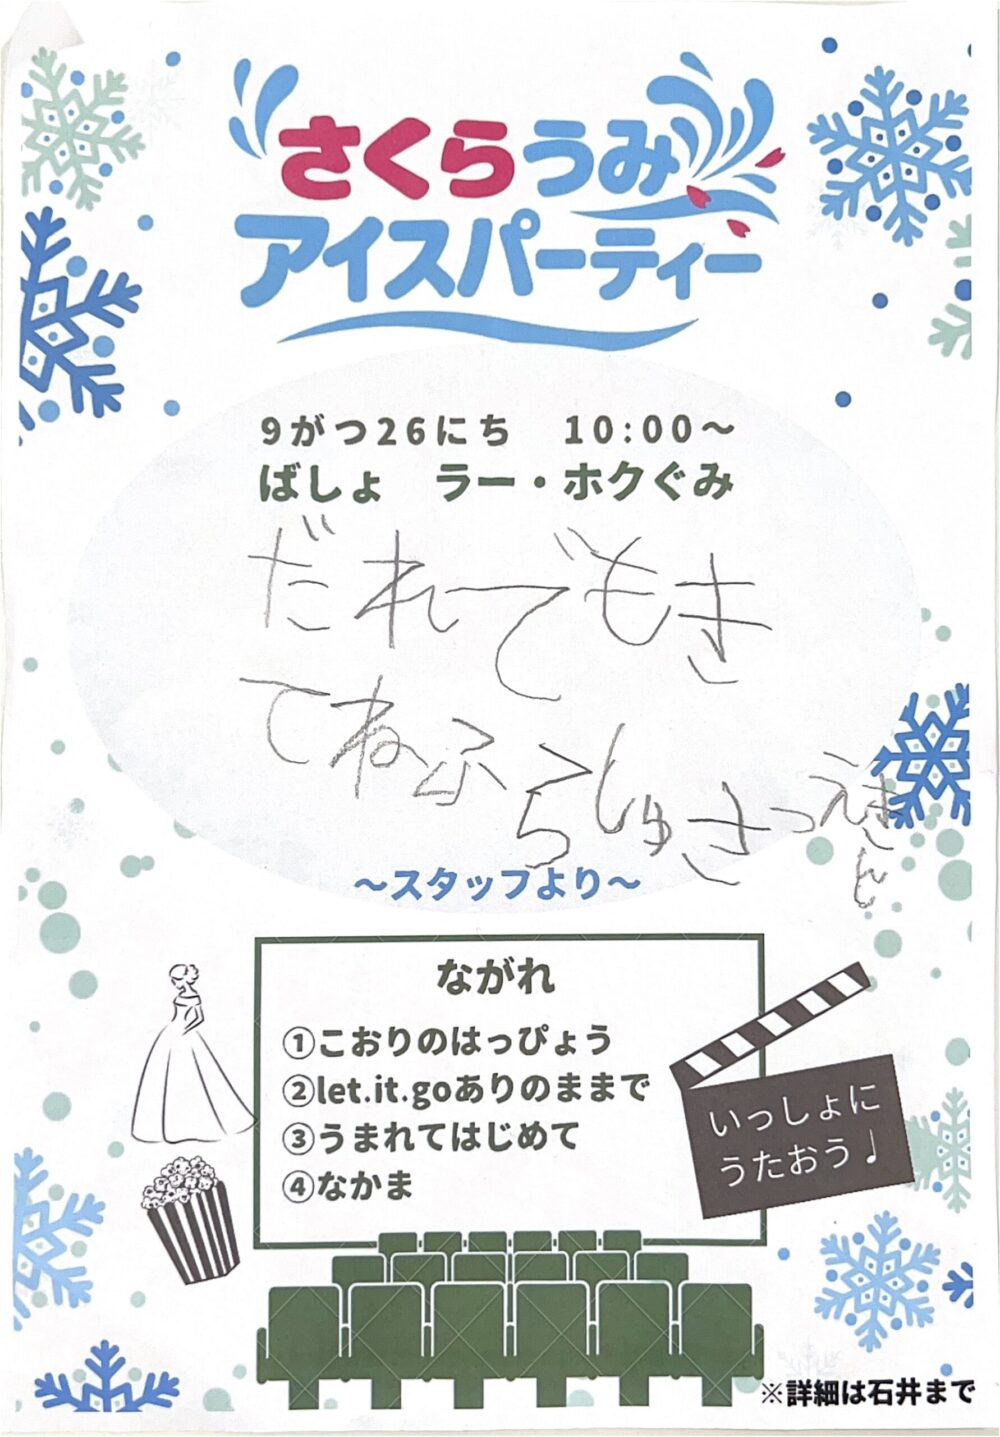 さくらうみ
アイスパーティー
9がつ26にち 10:00〜
ばしょ ラー・ホクぐみ
だれでもき
てね
〜スタッフより〜
ながれ
①こおりのはっぴょう
②let.it.goありのままで
③うまれてはじめて
④なかま
いっしょに
うたおう♩
※詳細は石井まで